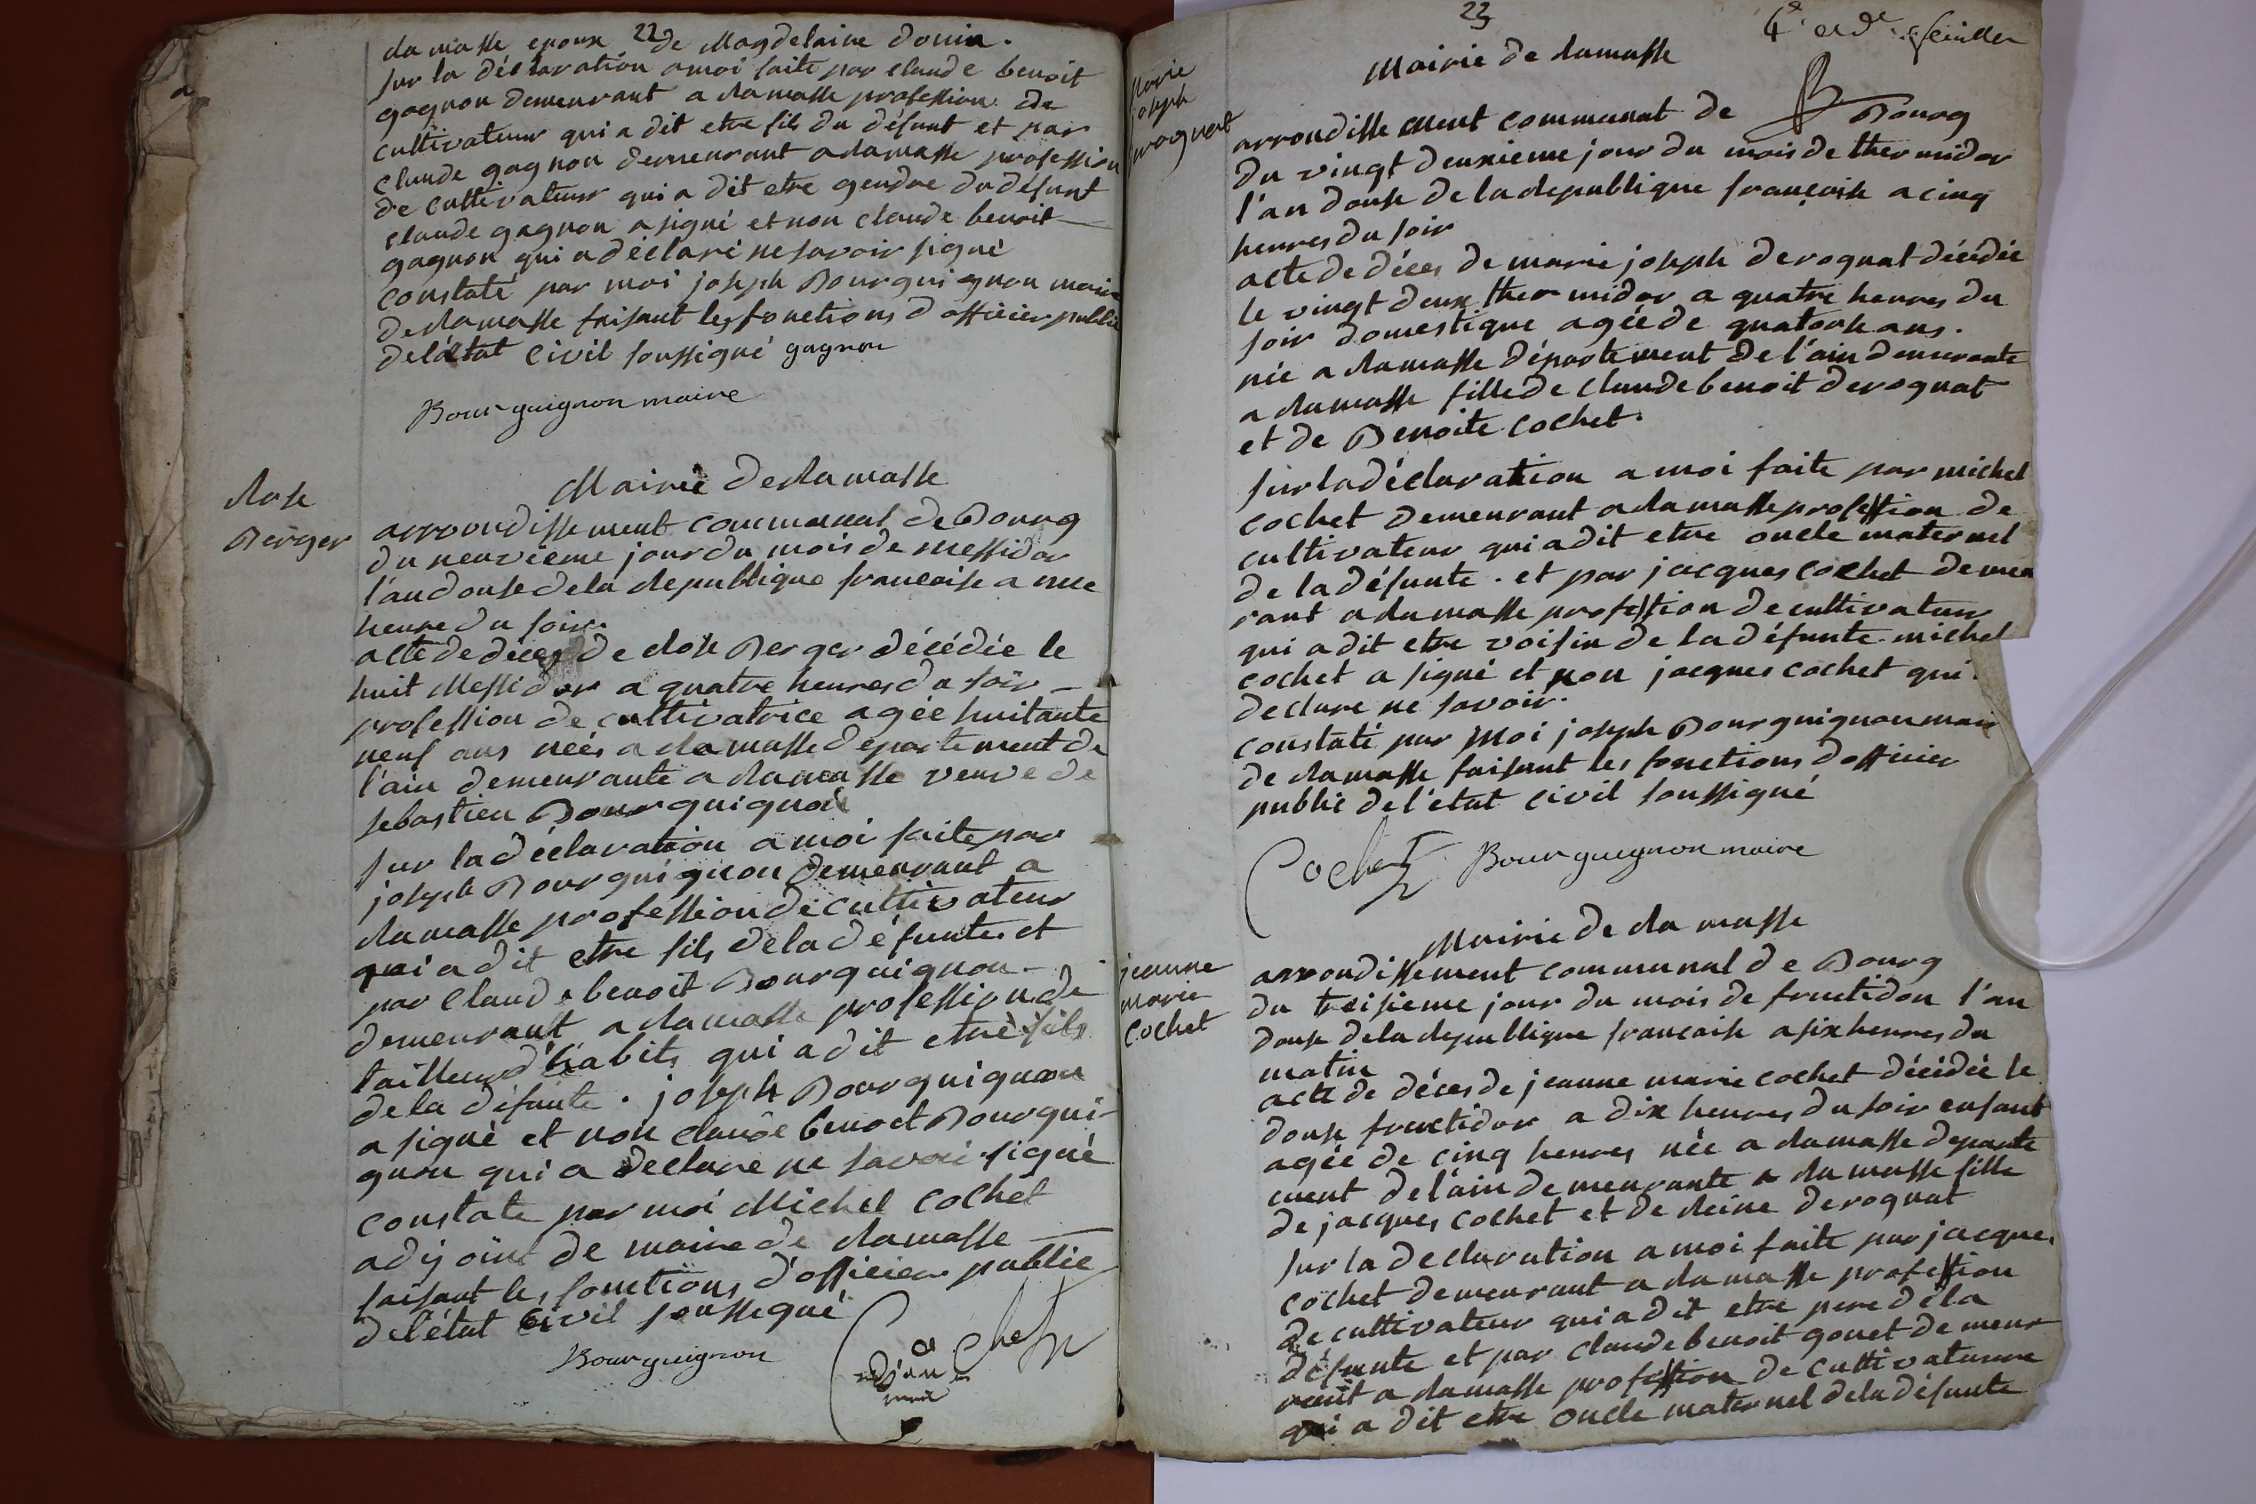 22
ramasse epoux de Magdelaine Donin.
sur la déclaration a moi faite par claude benoit
gagnon demeurant a ramasse profession de
cultivateur qui a dit etre fils du défunt et par
claude gagnon demeurant a ramasse profession
de cultivateur qui a dit etre gendre du défunt
claude gagnon a signé et non claude benoit
gagnon qui a déclaré ne savoir signé
constaté par moi joseph Bourguignon maire
de ramasse faisant les fonctions d officier public
de l'état civil soussigné gagnon
Bourguignon maire
Rose
Berger
Mairie de Ramasse
arrondissement communal de Bourg
du neuvieme jour du mois de messidor
l'an douse de la republique francaise a une
heure du soir
acte de déces de Rose Berger décédée le
huit Messidor a quatre heures du soir
profession de cultivatrice agée huitante
neuf ans née a Ramasse departement de
l'ain demeurante a Ramasse veuve de
sebastien Bourguignon
sur la déclaration a moi faite par
joseph Bourguignon demeurant a
Ramasse profession de cultivateur
qui a dit etre fils de la défunte et
par Claude benoit Bourguignon
demeurant a ramasse profession de
tailleur d'habits qui a dit etre fils
de la défunte. joseph Bourguignon
a signé et non claude benoet Bourgui-
gnon qui a declare ne savoir signé
constate par moi Michel Cochet
adjoint de maire de Ramasse
faisant les fonctions d'officier public
de l'état Civil soussigné
Bourguignon
Cochet
23
4e et de feuillet
Mairie de Ramasse
Marie
joseph
arrondissement communal de Bourg
du vingt deuxieme jour du mois de thermidor
l'an douse de la republique francaise a cinq
heures du soir
acte de déces de marie joseph derognat décédée
le vingt deux thermidor a quatre heures du
soir domestique agée de quatorse ans.
née a Ramasse département de l'ain demeurante
a Ramasse fille de claude benoit derognat
et de Benoite cochet.
sur la déclaration a moi faite par michel
cochet demeurant a Ramasse profession de
cultivateur qui a dit etre oncle maternel
de la défunte. et par jacques cochet demeu
rant a Ramasse profession de cultivateur
qui a dit etre voisin de la défunte. michel
cochet a signé et non jacques cochet qui
declare ne savoir.
constaté par moi joseph Bourguignon maire
de Ramasse faisant les fonctions d officier
public de l'état civil soussigné
Cochet Bourguignon maire
Mairie de Ramasse
jeanne
marie
Cochet
arrondissement communal de Bourg
du treisieme jour du mois de fructidor l'an
douse de la republique francaise a six heures du
matin
acte de déces de jeanne marie cochet décédée le
douse fructidor a dix heures du soir enfant
agée de cinq heures née a Ramasse departe
ment de l'ain demeurante a Ramasse fille
de jacques cochet et de Reine derognat
sur la declaration a moi faite par jacques
cochet demeurant a Ramasse profession
de cultivateur qui a dit etre pere de la
défunte et par claude benoit gouet demeu
rant a Ramasse profession de cultivateur
qui a dit etre oncle maternel de la défunte